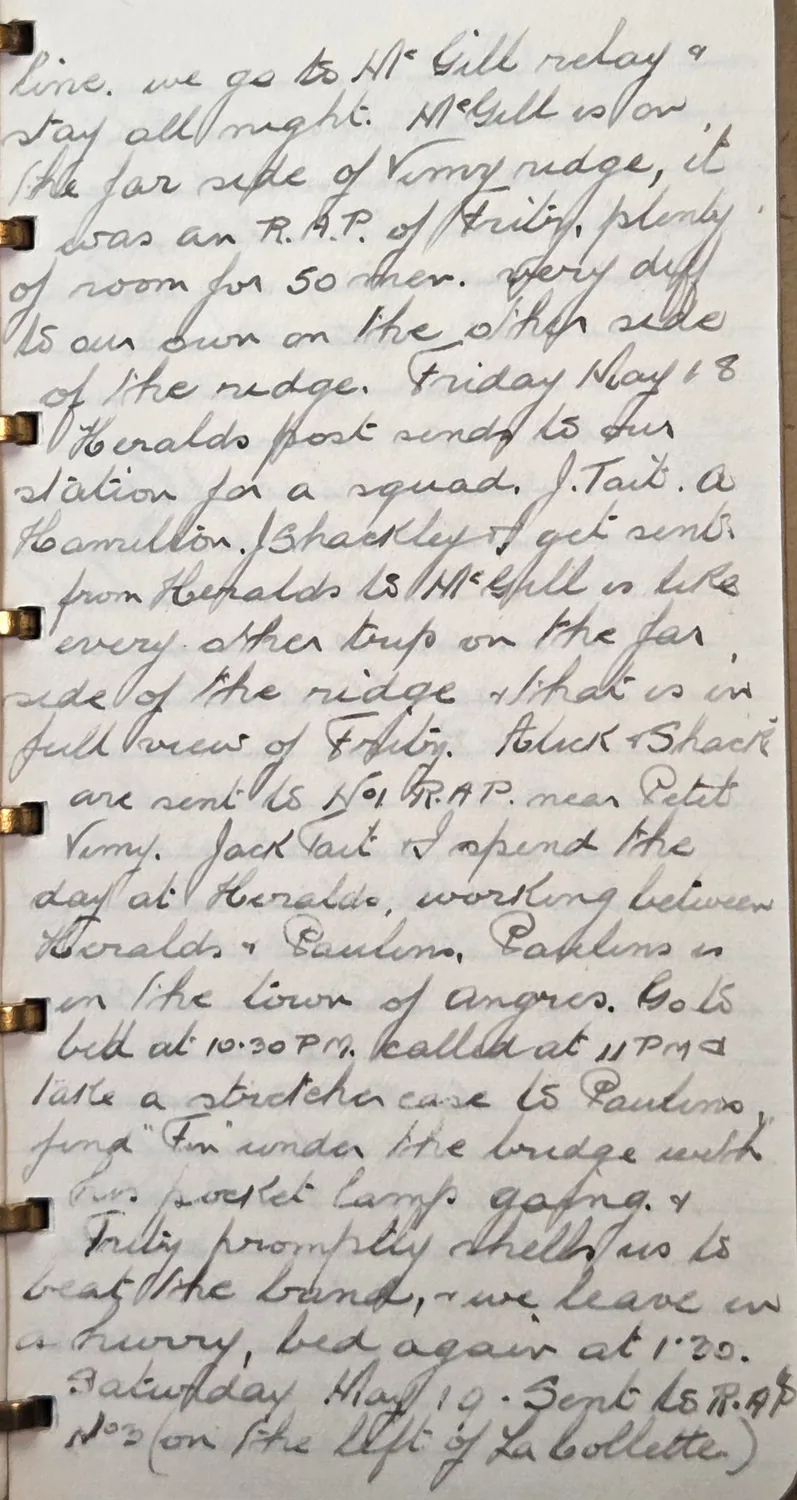 line. we go to McGill relay &
stay all night. McGill is on
the far side of Vimy ridge, it
was an R.A.P. of Fritz, plenty
of room for 50 men. very diff
to our own on the other side
of the ridge. Friday May 18
Heralds post sends to our
station for a squad. J. Tait. A
Hamilton. J Shackley & I get sent.
from Heralds to McGill is like
every other trip on the far
side of the ridge & that is in
full view of Fritz. & Shack
are sent to No1 R.A.P. near Petit
Vimy. Jack Tait & I spend the
day at Heralds, working between
Heralds & Paulins, Paulins is
in the town of Angres. Go to
bed at 10.30 PM. called at 11 PM &
take a stretcher case to Paulins,
find "Fin" under the bridge with
his pocket lamp going. &
Fritz promptly shells us to
beat the band, & we leave in
a hurry, bed again at 1.30.
Saturday May 19. Sent to R.A.P
No3 (on the left of La Collette)